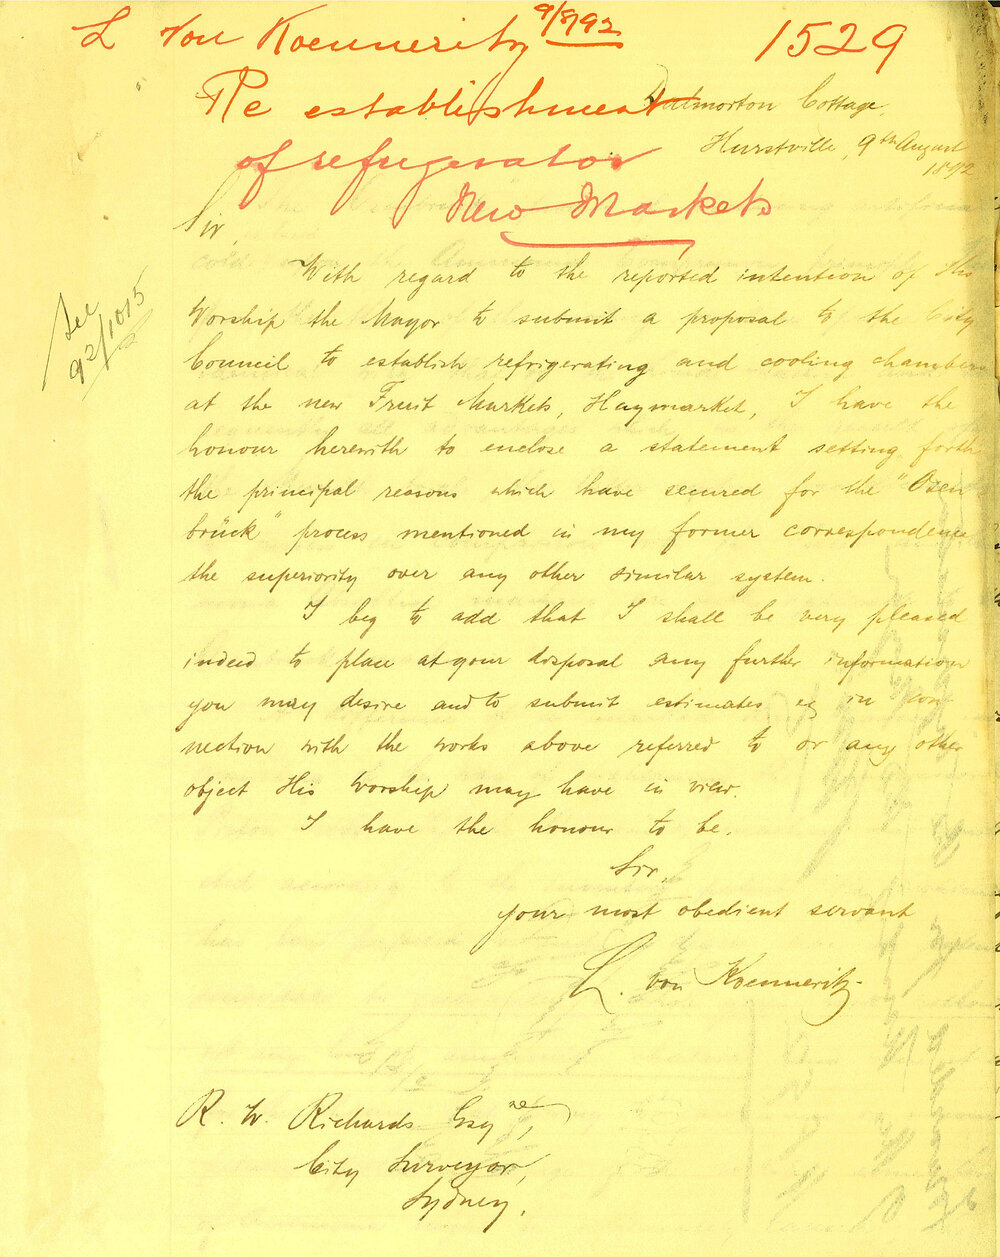 L von Koenneritz 9/8/92
1529
Re establishment
of refrigerator
New Markets
Dalmorton Cottage,
Hurstville, 9th August
1892
See
92/1015
Sir,
With regard to the reported intention of His
Worship the Mayor to submit a proposal to the City
Council to establish refrigerating and cooling chambers
at the new Fruit Markets, Haymarket, I have the
honour herewith to enclose a statement setting forth
the principal reasons which have secured for the "Osen
brück" process mentioned in my former correspondence
the superiority over any other similar system.
I beg to add that I shall be very pleased
indeed to place at your disposal any further information
you may desire and to submit estimates eg in con
nection with the works above referred to or any other
object His Worship may have in view.
I have the honour to be.
Sir,
your most obedient servant
L. von Koenneritz
R. W. Richards Esqre,
City Surveyor,
Sydney.